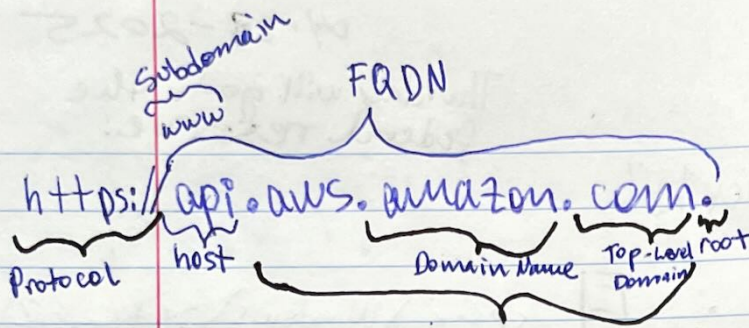 Subdomain
www
FQDN
https://api.aws.amazon.com.
Protocol
host
Domain Name
Top-Level
Domain
root